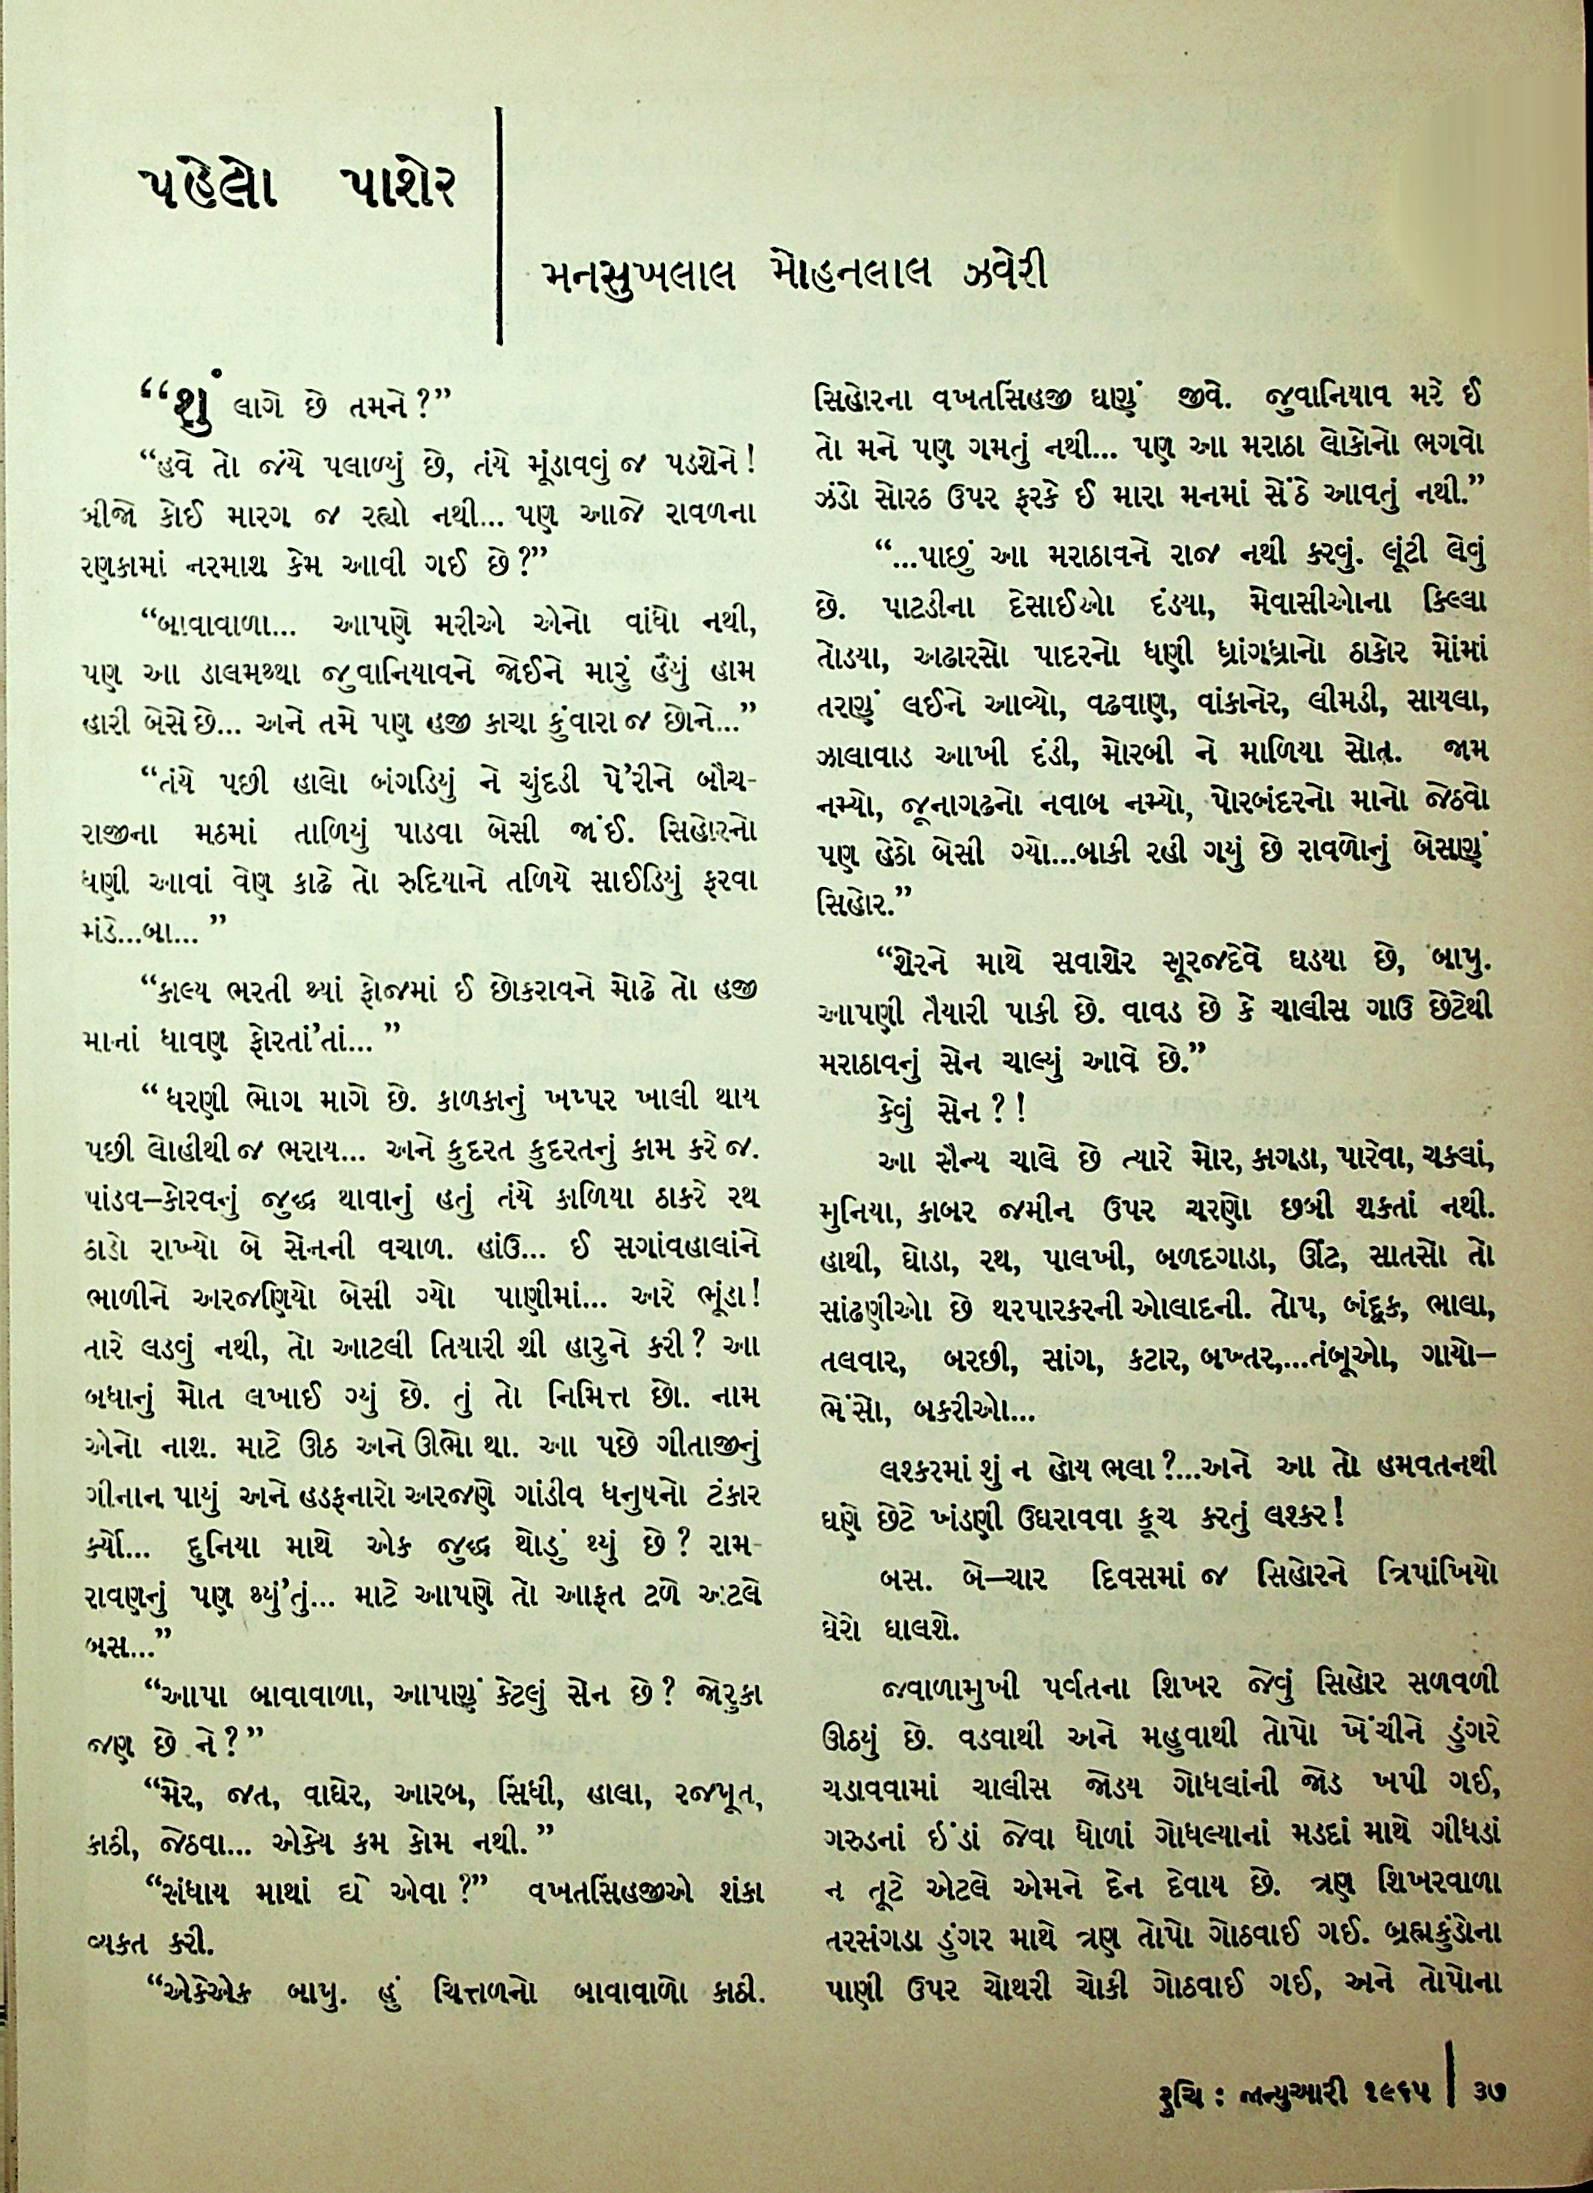 પહેલો પાશેર
મનસુખલાલ મોહનલાલ ઝવેરી
“શું લાગે છે તમને?”
“હવે તો જંયે પલાળ્યું છે, તંયે મૂંડાવવું જ પડશેને!
બીજો કોઈ મારગ જ રહ્યો નથી... પણ આજે રાવળના
રણકામાં નરમાશ કેમ આવી ગઈ છે?”
“બાવાવાળા... આપણે મરીએ એનો વાંધો નથી,
પણ આ ડાલમથ્થા જુવાનિયાવને જોઈને મારું હૈયું હામ
હારી બેસે છે... અને તમે પણ હજી કાચા કુંવારા જ છોને...”
“તંયે પછી હાલો બંગડિયું ને ચુંદડી પે'રીને બૌચ-
રાજીના મઠમાં તાળિયું પાડવા બેસી જાંઈ. સિહોરનો
ધણી આવાં વેણ કાઢે તો રુદિયાને તળિયે સાઈડિયું ફરવા
મંડે...બા... ”
“કાલ્ય ભરતી થ્યાં ફોજમાં ઈ છોકરાવને મોઢે તો હજી
માનાં ધાવણ ફોરતાં'તાં... ”
“ધરણી ભોગ માગે છે. કાળકાનું ખપ્પર ખાલી થાય
પછી લોહીથી જ ભરાય... અને કુદરત કુદરતનું કામ કરે જ.
પાંડવ–કોરવનું જુદ્ધ થાવાનું હતું તંયે કાળિયા ઠાકરે રથ
ઠાડો રાખ્યો બે સેનની વચાળ. હાંઉ... ઈ સગાંવહાલાંને
ભાળીને અરજણિયો બેસી ગ્યો પાણીમાં... અરે ભૂંડા!
તારે લડવું નથી, તો આટલી તિયારી શી હારુને કરી? આ
બધાનું મોત લખાઈ ગ્યું છે. તું તો નિમિત્ત છો. નામ
એનો નાશ. માટે ઊઠ અને ઊભો થા. આ પછે ગીતાજીનું
ગીનાન પાયું અને હડફનારો અરજણે ગાંડીવ ધનુષનો ટંકાર
કર્યો... દુનિયા માથે એક જુદ્ધ થોડું થ્યું છે? રામ-
રાવણનું પણ થ્યું'તું... માટે આપણે તો આફત ટળે અટલે
બસ...”
“આપા બાવાવાળા, આપાણું કેટલું સેન છે? જોરુકા
જણ છે ને?”
“મેર, જત, વાઘેર, આરબ, સિંધી, હાલા, રજપૂત,
કાઠી, જેઠવા... એક્યે કમ કોમ નથી.”
“સંધાય માથાં દ્યે એવા?” વખતસિંહજીએ શંકા
વ્યકત કરી.
“એકેએક બાપુ. હું ચિત્તળનો બાવાવાળો કાઠી.
સિહોરના વખતસિંહજી ઘણું જીવે. જુવાનિયાવ મરે ઈ
તો મને પણ ગમતું નથી... પણ આ મરાઠા લોકોનો ભગવો
ઝંડો સોરઠ ઉપર ફરકે ઈ મારા મનમાં સેંઠે આવતું નથી.”
“...પાછું આ મરાઠાવને રાજ નથી કરવું. લૂંટી લેવું
છે. પાટડીના દેસાઈઓ દંડયા, મેવાસીઓના કિલ્લા
તોડયા, અઢારસો પાદરનો ધણી ધ્રાંગધ્રાનો ઠાકોર મોંમાં
તરણું લઈને આવ્યો, વઢવાણ, વાંકાનેર, લીમડી, સાયલા,
ઝાલાવાડ આખી દંડી, મોરબી ને માળિયા સોત. જામ
નમ્યો, જૂનાગઢનો નવાબ નમ્યો, પોરબંદરનો માનો જેઠવો
પણ હેઠો બેસી ગ્યો...બાકી રહી ગયું છે રાવળોનું બેસણું
સિહોર.”
“શેરને માથે સવાશેર સૂરજદેવે ઘડયા છે, બાપુ.
આપણી તૈયારી પાકી છે. વાવડ છે કે ચાલીસ ગાઉ છેટેથી
મરાઠાવનું સેન ચાલ્યું આવે છે.”
કેવું સેન?!
આ સૈન્ય ચાલે છે ત્યારે મોર, કાગડા, પારેવા, ચકલાં,
મુનિયા, કાબર જમીન ઉપર ચરણો છબી શકતાં નથી.
હાથી, ઘોડા, રથ, પાલખી, બળદગાડા, ઊંટ, સાતસો તો
સાંઢણીઓ છે થરપારકરની ઓલાદની. તોપ, બંદૂક, ભાલા,
તલવાર, બરછી, સાંગ, કટાર, બખ્તર,...તંબૂઓ, ગાયો–
ભેંસો, બકરીઓ...
લશ્કરમાં શું ન હોય ભલા?...અને આ તો હમવતનથી
ઘણે છેટે ખંડણી ઉઘરાવવા કૂચ કરતું લશ્કર!
બસ. બે–ચાર દિવસમાં જ સિહોરને ત્રિપાંખિયો
ઘેરો ઘાલશે.
જવાળામુખી પર્વતના શિખર જેવું સિહોર સળવળી
ઊઠયું છે. વડવાથી અને મહુવાથી તોપો ખેંચીને ડુંગરે
ચડાવવામાં ચાલીસ જોડય ગોધલાંની જોડ ખપી ગઈ,
ગરુડનાં ઈંડાં જેવા ધોળાં ગોધલ્યાનાં મડદાં માથે ગીધડાં
ન તૂટે એટલે એમને દેન દેવાય છે. ત્રણ શિખરવાળા
તરસંગડા ડુંગર માથે ત્રણ તોપો ગોઠવાઈ ગઈ. બ્રહ્મકુંડોના
પાણી ઉપર ચોથરી ચોકી ગોઠવાઈ ગઈ, અને તોપોના
રુચિ : જાન્યુઆરી ૧૯૬૫ | ૩૭